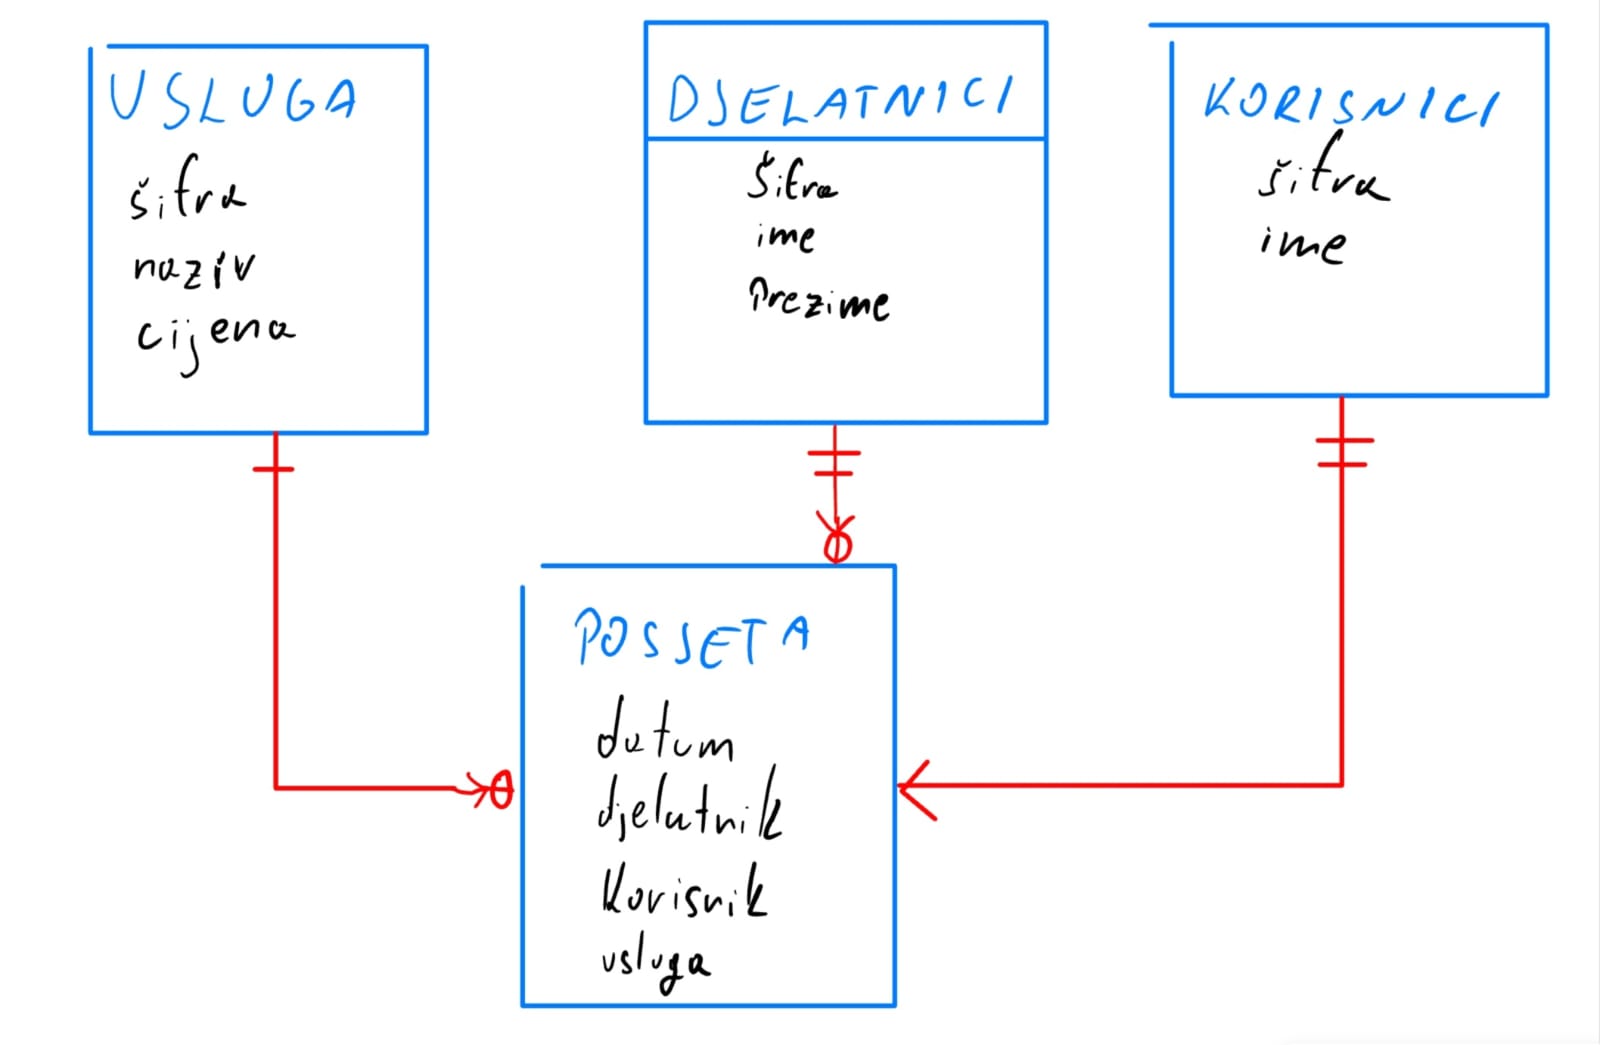 USLUGA
šifra
naziv
cijena
DJELATNICI
Šifra
ime
Prezime
KORISNICI
šifra
ime
POSJETA
datum
djelatnik
Korisnik
usluga